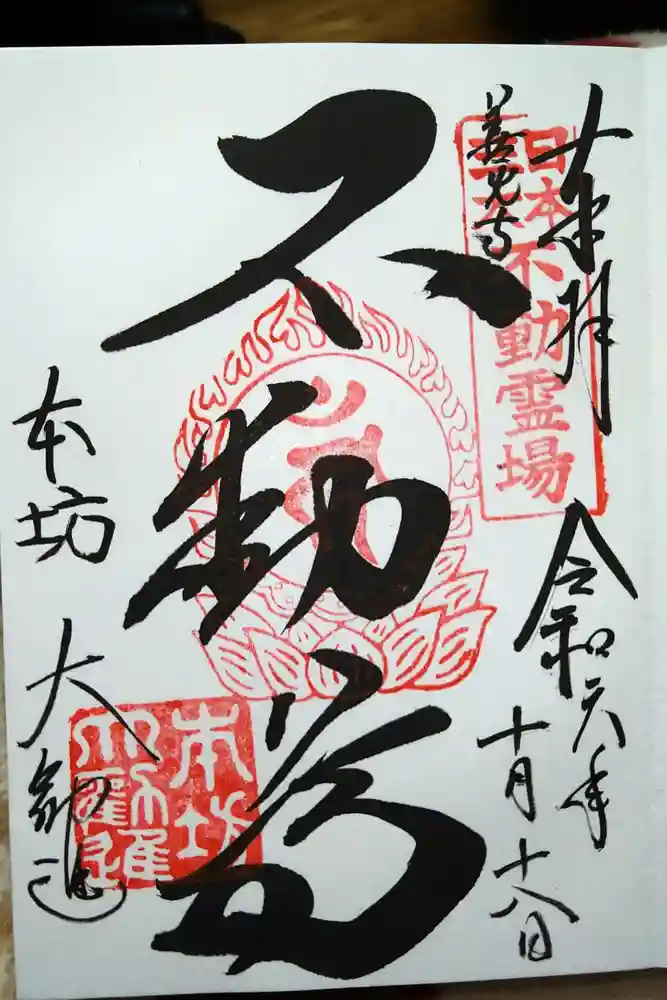 奉拝
善光寺
日本不動霊場
令和六年
十月十八日
不動尊
本坊
大勧進
本坊